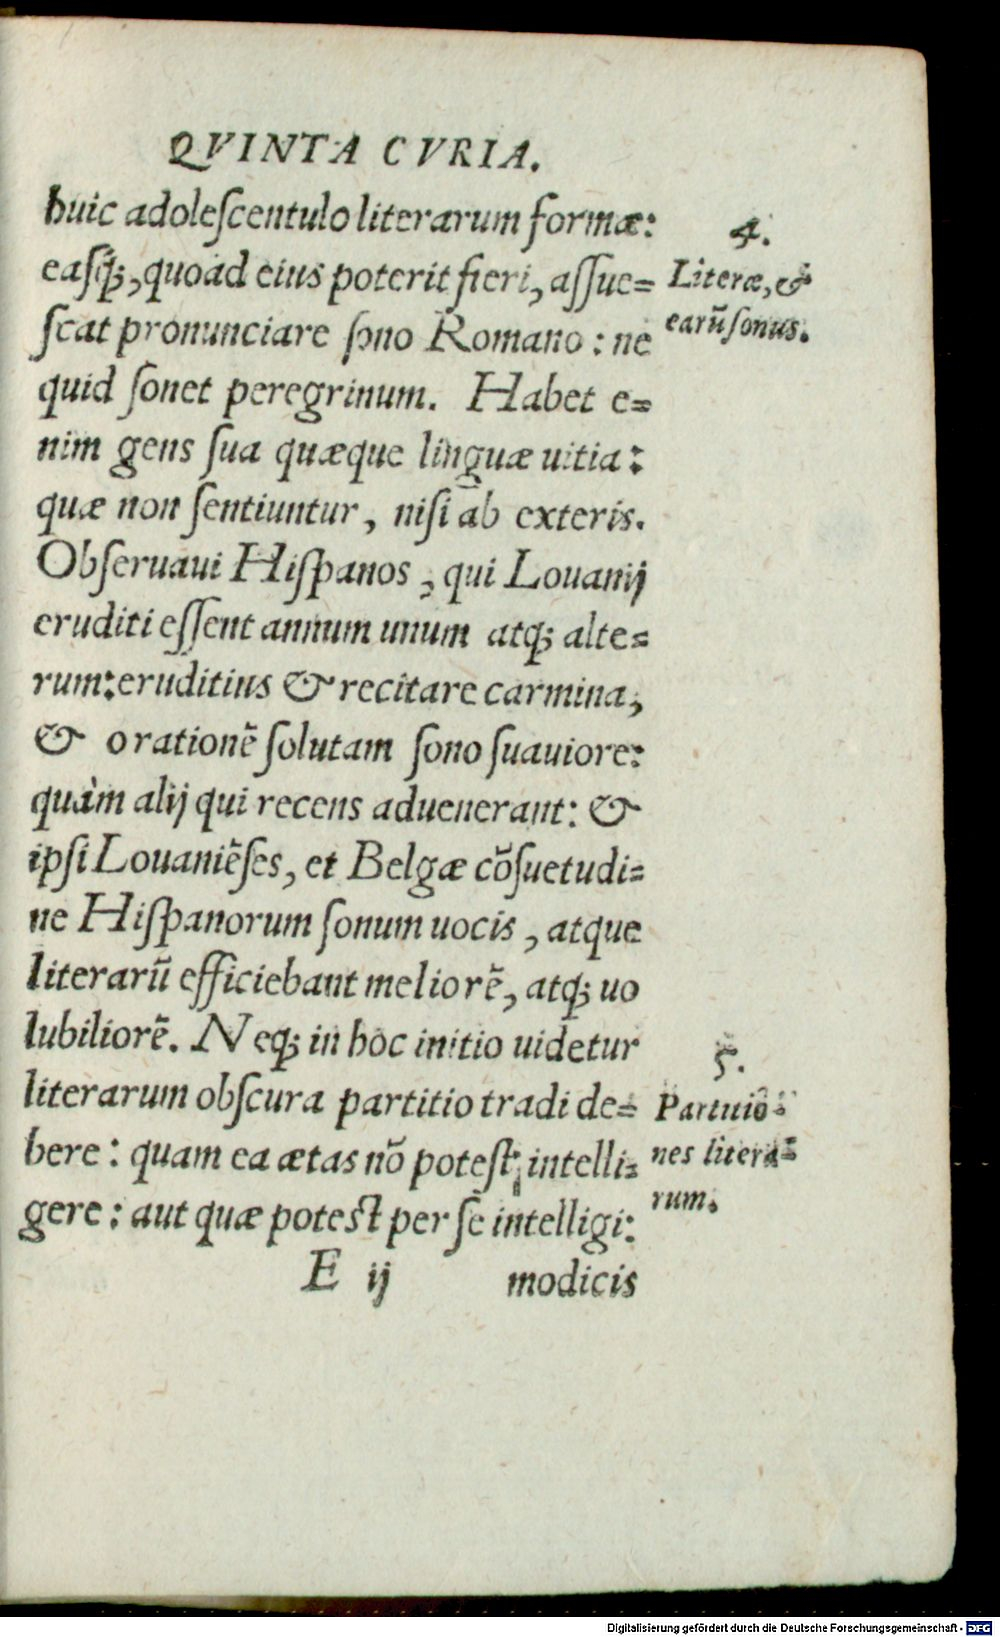 QVINTA CVRIA.
huic adoleſcentulo literarum formæ:
eaſq́;, quoad eius poterit fieri, aſſue=
ſcat pronunciare ſono Romano: ne
quid ſonet peregrinum. Habet e=
nim gens ſua quæque linguæ uitia:
quæ non ſentiuntur, niſi ab exteris.
Obſeruaui Hiſpanos, qui Louanij
eruditi eſſent annum unum atq; alte=
rum: eruditius & recitare carmina,
& orationẽ ſolutam ſono ſuauiore:
quàm alij qui recens aduenerant: &
ipſi Louaniẽſes, et Belgæ cõſuetudi=
ne Hiſpanorum ſonum uocis, atque
literarũ efficiebant meliorẽ, atq; uo
lubiliorẽ. Neq; in hoc initio uidetur
literarum obſcura partitio tradi de=
bere: quam ea ætas nõ poteſt intelli=
gere: aut quæ poteſt per ſe intelligi:
E ij modicis
4.
Literæ, &
earũ ſonus.
5.
Partitiõ=
nes litera=
rum.
Digitalisierung gefördert durch die Deutsche Forschungsgemeinschaft - DFG